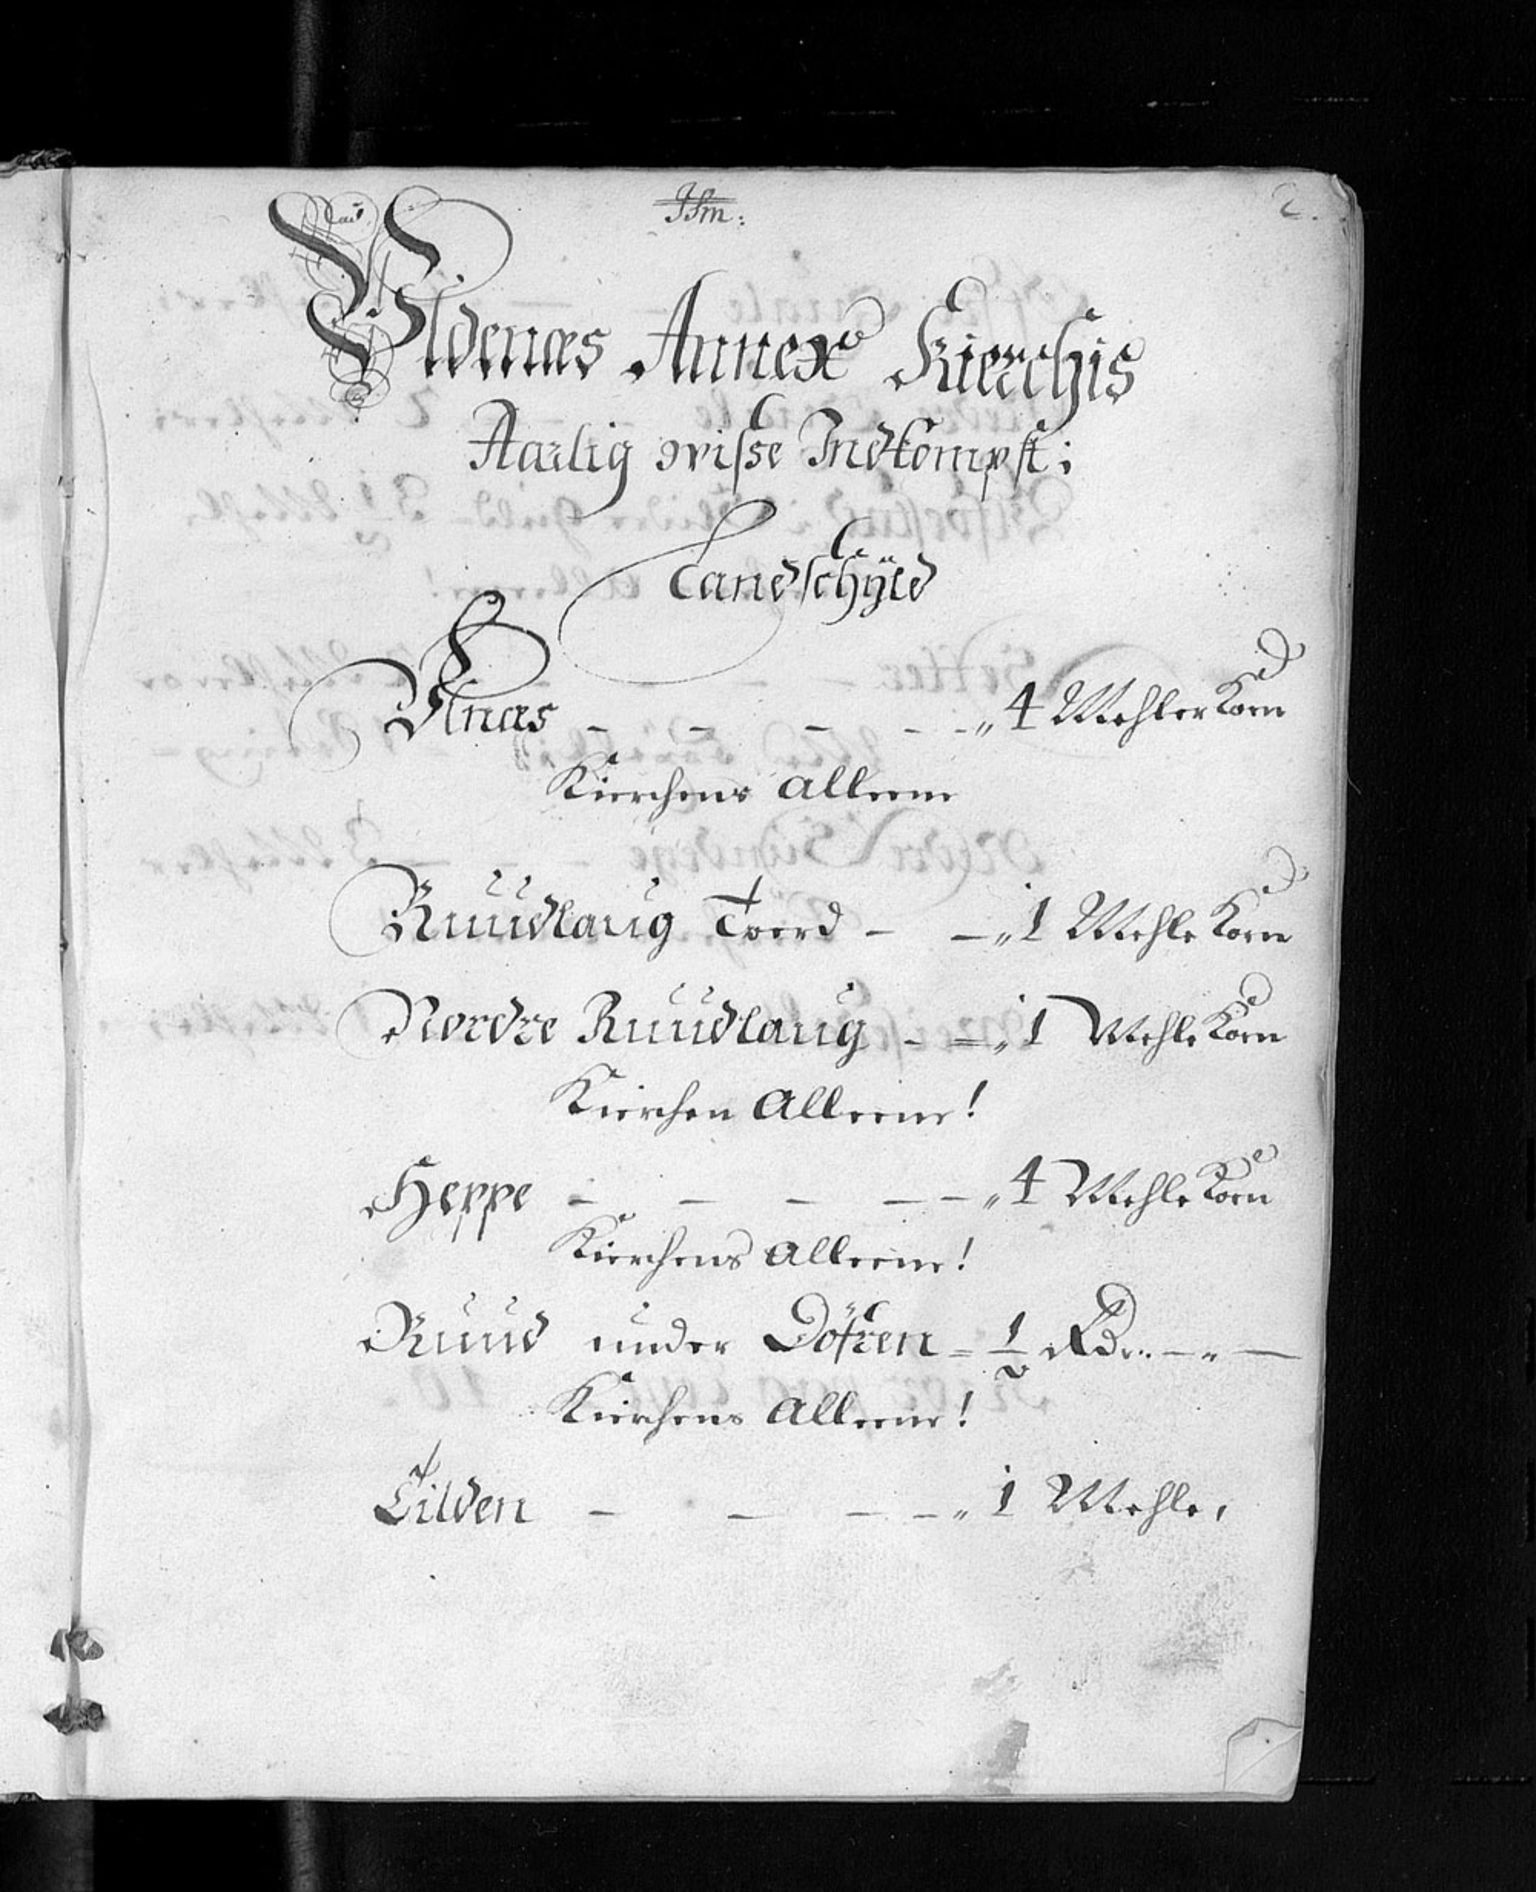 2.
Uldenæs Annex Kierchis
Aarlig wisse Indkompst:
Landschÿld
Ulnæs - - - - - „ 4 Mehler Korn
Kierchens Alleene
Ruudlaug Twerd - - „ 1 Mehle Korn
Nordre Ruudlaug - = „ 1 Mehle Korn
Kierchen Alleene!
Heppe - - - - - „ 4 Mehle Korn
Kierchens Alleene!
Ruud under Döfren = 1/2
Kierchens Alleene!
Tilden - - - - „ 1 Mehle,